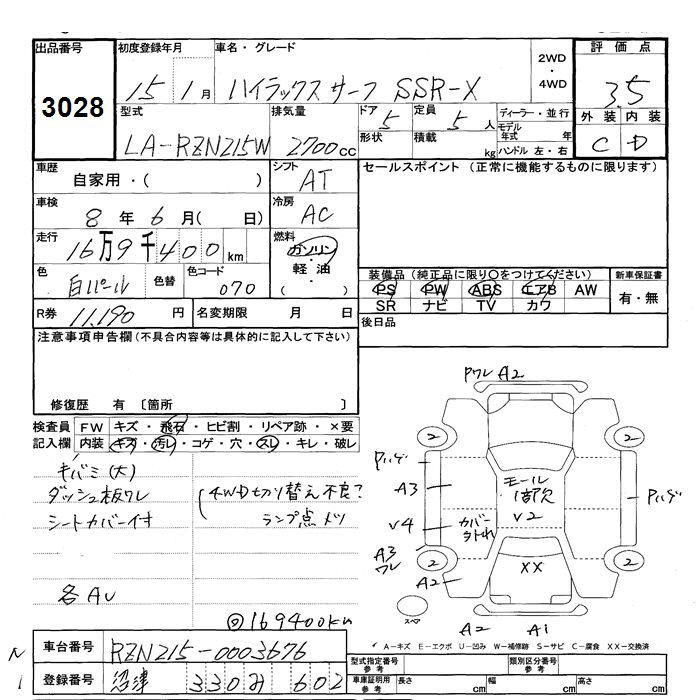 出品番号
3028
初度登録年月
15 1月
車名・グレード
ハイラックスサーフ SSR-X
2WD
・
4WD
評価点
3.5
外装 内装
C D
型式
LA-RZN215W
排気量
2700cc
ドア
5
形状
定員
5人
積載
kg
ディーラー・並行
モデル年式 年
ハンドル 左・右
車歴
自家用・( )
シフト
AT
セールスポイント (正常に機能するものに限ります)
車検
8年 6月( 日)
冷房
AC
走行
16万9千400km
燃料
ガソリン
・
軽油
( )
色
白パール
色替
色コード
070
装備品 (純正品に限り○をつけてください)
PS PW ABS エアB AW
SR ナビ TV カワ
新車保証書
有・無
R券 11,190円
名変期限 月 日
後日品
注意事項申告欄 (不具合内容等は具体的に記入して下さい)
修復歴 有 〔箇所 〕
検査員記入欄
FW キズ・飛石・ヒビ割・リペア跡・×要
内装 キズ・汚レ・コゲ・穴・スレ・キレ・破レ
キバミ(大)
ダッシュ板ワレ
シートカバー付
4WD切り替え不良?
ランプ点メツ
各AU
169400km
PワレA2
2
2
Pハゲ
A3
V4
A3
ワレ
2
A2
モール
1部欠
V2
カバー
ヨトれ
XX
Pハゲ
2
スペア
A2 A1
A-キズ E-エクボ U-凹み W-補修跡 S-サビ C-腐食 XX-交換済
N
1
車台番号
RZN215-0003676
登録番号
沼津 330 み 602
型式指定番号
参考
類別区分番号
参考
車庫証明用
参考
長さ cm
幅 cm
高さ cm